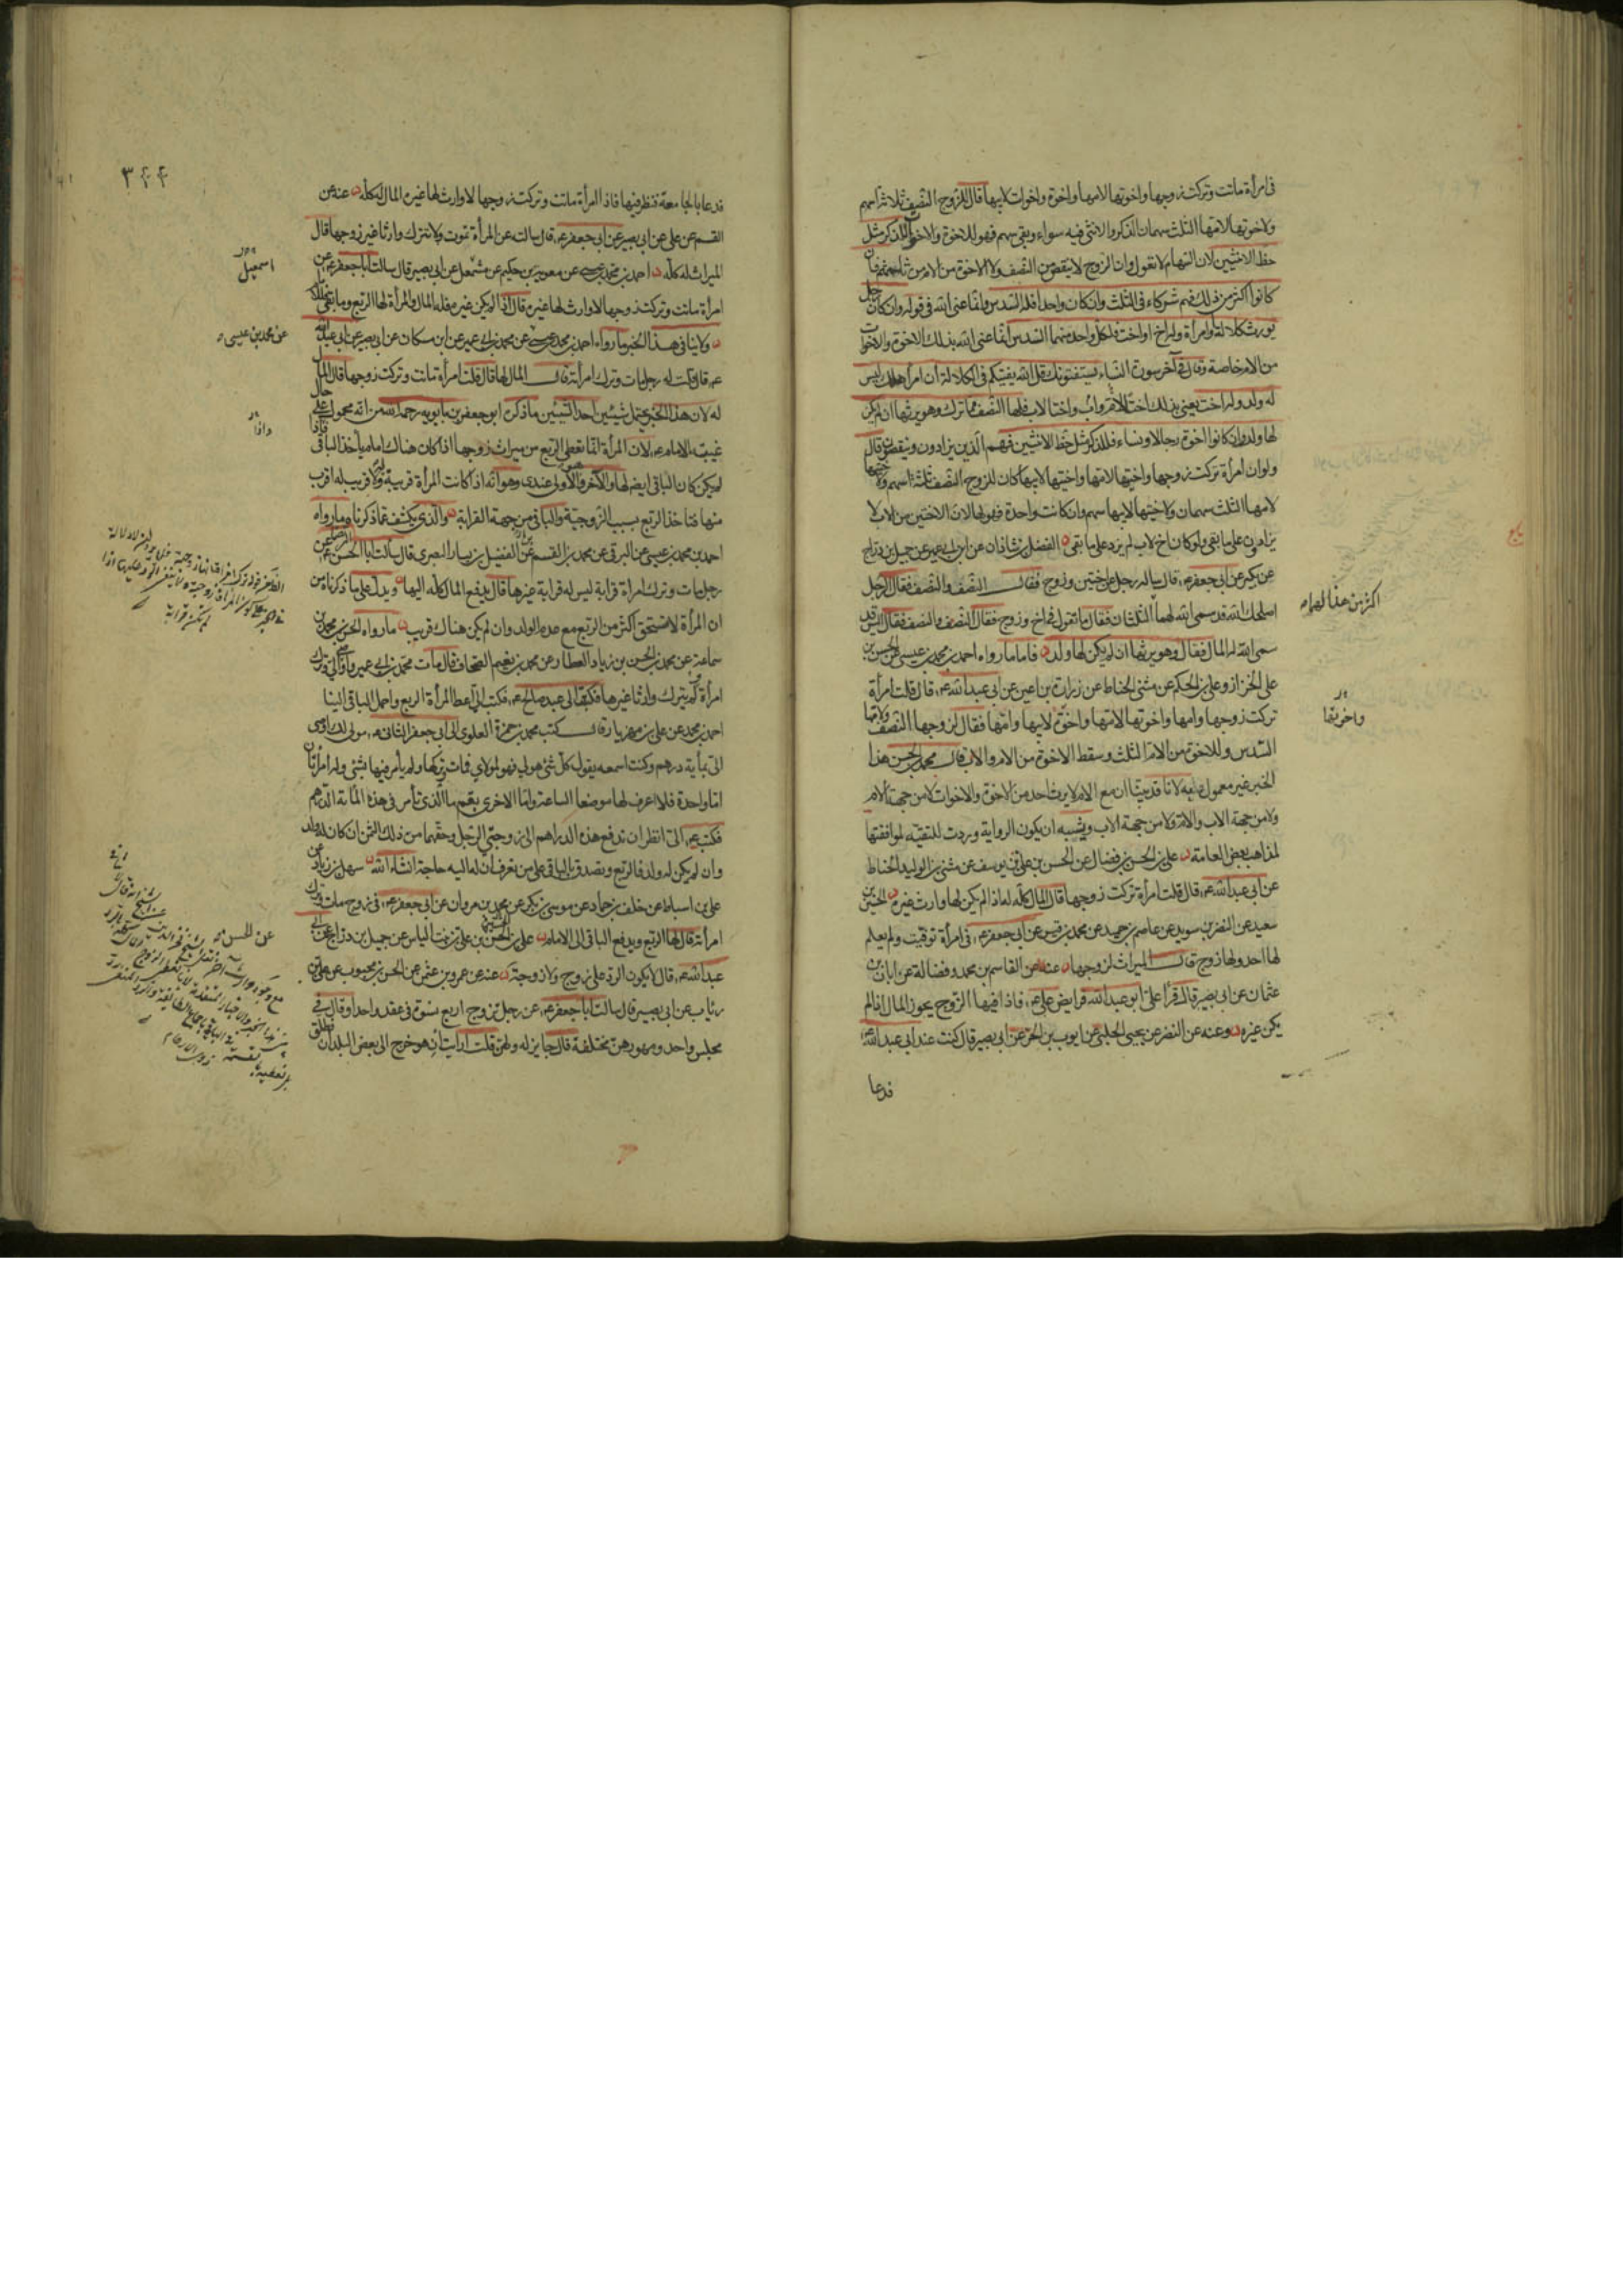 في امرأة ماتت وتركت زوجها واخوتها لامها واخوة واخوات لابيها قال للزوج النصف ثلاثة اسهم
ولاخوتها لامها الثلث سهمان الذكر والانثى فيه سواء وبقي سهم فهو للاخوة والاخوات للذكر مثل
حظ الانثيين لان السهام لا تعول وان الزوج لا ينقص من النصف ولا الاخوة من الام من ثلثهم فان
كانوا اكثر من ذلك فهم شركاء في الثلث وان كان واحدا فله السدس وانما عنى الله في قوله وان كان رجل
يورث كلالة او امرأة وله اخ او اخت فلكل واحد منهما السدس انما عنى الله بذلك الاخوة والاخوات
من الام خاصة وقال في آخر سورة النساء يستفتونك قل الله يفتيكم في الكلالة ان امرأ هلك ليس
له ولد وله اخت يعني بذلك اختا لاب وام واختا لاب فلها النصف مما ترك وهو يرثها ان لم يكن
لها ولد وان كانوا اخوة رجالا ونساء فللذكر مثل حظ الانثيين فهم الذين يزادون وينقصون قال
ولو ان امرأة تركت زوجها واختيها لامها واختيها لابيها كان للزوج النصف ثلثة اسهم ولاختيها
لامها الثلث سهمان ولاختيها لابيها سهم وان كانت واحدة فهو لها لان الاختين من الاب لا
يزادون على ما بقي ولو كان اخ لاب لم يزد على ما بقي الفضل بن شاذان عن ابن ابي عمير عن جميل بن دراج
عن بكير عن ابي جعفر ع قال سأله رجل عن اختين وزوج فقال النصف والنصف فقال الرجل
اصلحك الله قد سمى الله لهما الثلثان فقال ما تقول في اخ وزوج فقال النصف والنصف فقال اليس قد
سمى الله له المال فقال وهو يرثها ان لم يكن لها ولد فاما ما رواه احمد بن محمد بن عيسى عن الحسن بن
علي الخزاز وعلي بن الحكم عن مثنى الحناط عن زرارة بن اعين عن ابي عبد الله ع قال قلت امرأة
تركت زوجها وامها واخوتها لامها واخوة لابيها وامها فقال لزوجها النصف ولامها
السدس وللاخوة من الام الثلث وسقط الاخوة من الام والاب قال محمد بن الحسن هذا
الخبر غير معمول عليه لانا قد بينا ان مع الام لا يرث احد من الاخوة والاخوات لا من جهة الام
ولا من جهة الاب والام ولا من جهة الاب ويشبه ان يكون الرواية وردت للتقية لموافقتها
لمذاهب بعض العامة علي بن الحسن بن فضال عن الحسن بن علي بن يوسف عن مثنى بن الوليد الحناط
عن ابي عبد الله ع قال قلت امرأة تركت زوجها قال المال كله له اذا لم يكن لها وارث غيره الحسين بن
سعيد عن النضر بن سويد عن عاصم بن حميد عن محمد بن قيس عن ابي جعفر ع في امرأة توفيت ولم يعلم
لها احد ولها زوج قال الميراث لزوجها عنه عن القاسم بن محمد وفضالة عن ابان بن
عثمان عن ابي بصير قال قرأ علي ابو عبد الله فرايض علي ع فاذا فيها الزوج يحوز المال اذا لم
يكن غيره وعنه عن النضر عن يحيى الحلبي عن ايوب بن الحر عن ابي بصير قال كنت عند ابي عبد الله ع
فدعا
اكثر من هذا
واخوتها
٣٤٤
فدعا بالجامعة فنظر فيها فاذا امرأة ماتت وتركت زوجها لا وارث لها غيره المال له كله عنه عن
القسم عن علي عن ابي بصير عن ابي جعفر ع قال سألته عن المرأة تموت ولا تترك وارثا غير زوجها قال
الميراث له كله احمد بن محمد بن عيسى عن معوية بن حكيم عن مشمعل عن ابي بصير قال سألت ابا جعفر ع عن
امرأة ماتت وتركت زوجها لا وارث لها غيره قال اذا لم يكن غيره فله المال والمرأة لها الربع وما بقي فللامام
ولا ينافي هذا الخبر ما رواه احمد بن محمد بن عيسى عن محمد بن ابي عمير عن ابن مسكان عن ابي بصير عن ابي عبد الله
ع قال قلت له رجل مات وترك امرأته قال المال لها قال قلت امرأة ماتت وتركت زوجها قال المال
له لان هذا الخبر يحتمل شيئين احد الشيئين ما ذكره ابو جعفر بن بابويه رحمه الله من انه محمول على حال
غيبة الامام ع لان المرأة انما تعطى الربع من ميراث زوجها اذا كان هناك امام يأخذ الباقي فاذا
لم يكن كان الباقي ايضا لها والآخر وهو الاولى عندي وهو انه اذا كانت المرأة قريبة ولا قريب له اقرب
منها فتأخذ الربع بسبب الزوجية والباقي من جهة القرابة والذي يكشف عما ذكرناه ما رواه
احمد بن محمد بن عيسى عن البرقي عن محمد بن القسم عن الفضيل بن يسار البصري قال سألت ابا الحسن الرضا ع عن
رجل مات وترك امرأة قرابة ليس له قرابة غيرها قال يدفع المال كله اليها ويدل على ما ذكرناه من
ان المرأة لا تستحق اكثر من الربع مع عدم الولد وان لم يكن هناك قريب ما رواه الحسن بن محمد بن
سماعة عن محمد بن الحسن بن زياد العطار عن محمد بن نعيم الصحاف قال مات محمد بن ابي عمير واوصى الي وترك
امرأة لم يترك وارثا غيرها فكتبت الى عبد صالح ع فكتب الي اعط المرأة الربع واحمل الباقي الينا
احمد بن محمد عن علي بن مهزيار قال كتب محمد بن حمزة العلوي الى ابي جعفر الثاني ع مولى لك اوصى
الي بمأية درهم وكنت اسمعه يقول كل شيء هو لي فهو لمولاي فمات وتركها ولم يأمر فيها بشيء وله امرأتان
اما واحدة فلا اعرف لها موضعا الساعة واما الاخرى بقم ما الذي تأمر في هذه المأية الدرهم
فكتب ع الي انظر ان تدفع هذه الدراهم الى زوجتي الرجل وحقهما من ذلك الثمن ان كان له ولد
وان لم يكن له ولد فالربع وتصدق بالباقي على من تعرف ان له اليه حاجة انشاء الله سهل بن زياد عن
علي بن اسباط عن خلف بن حماد عن موسى بن بكر عن محمد بن مروان عن ابي جعفر ع في زوج مات وترك
امرأته قال لها الربع ويدفع الباقي الى الامام علي بن الحسن عن الحسن بن علي بن بنت الياس عن جميل بن دراج عن ابي
عبد الله ع قال لا يكون الرد على زوج ولا زوجة عنه عن عمرو بن عثمن عن الحسن بن محبوب عن علي بن
رئاب عن ابي بصير قال سألت ابا جعفر ع عن رجل تزوج اربع نسوة في عقد واحد او قال في
مجلس واحد ومهورهن مختلفة قال جايز له ولهن قلت ارايت ان هو خرج الى بعض البلدان فطلق
اسمعيل
عن محمد بن عيسى
واذا